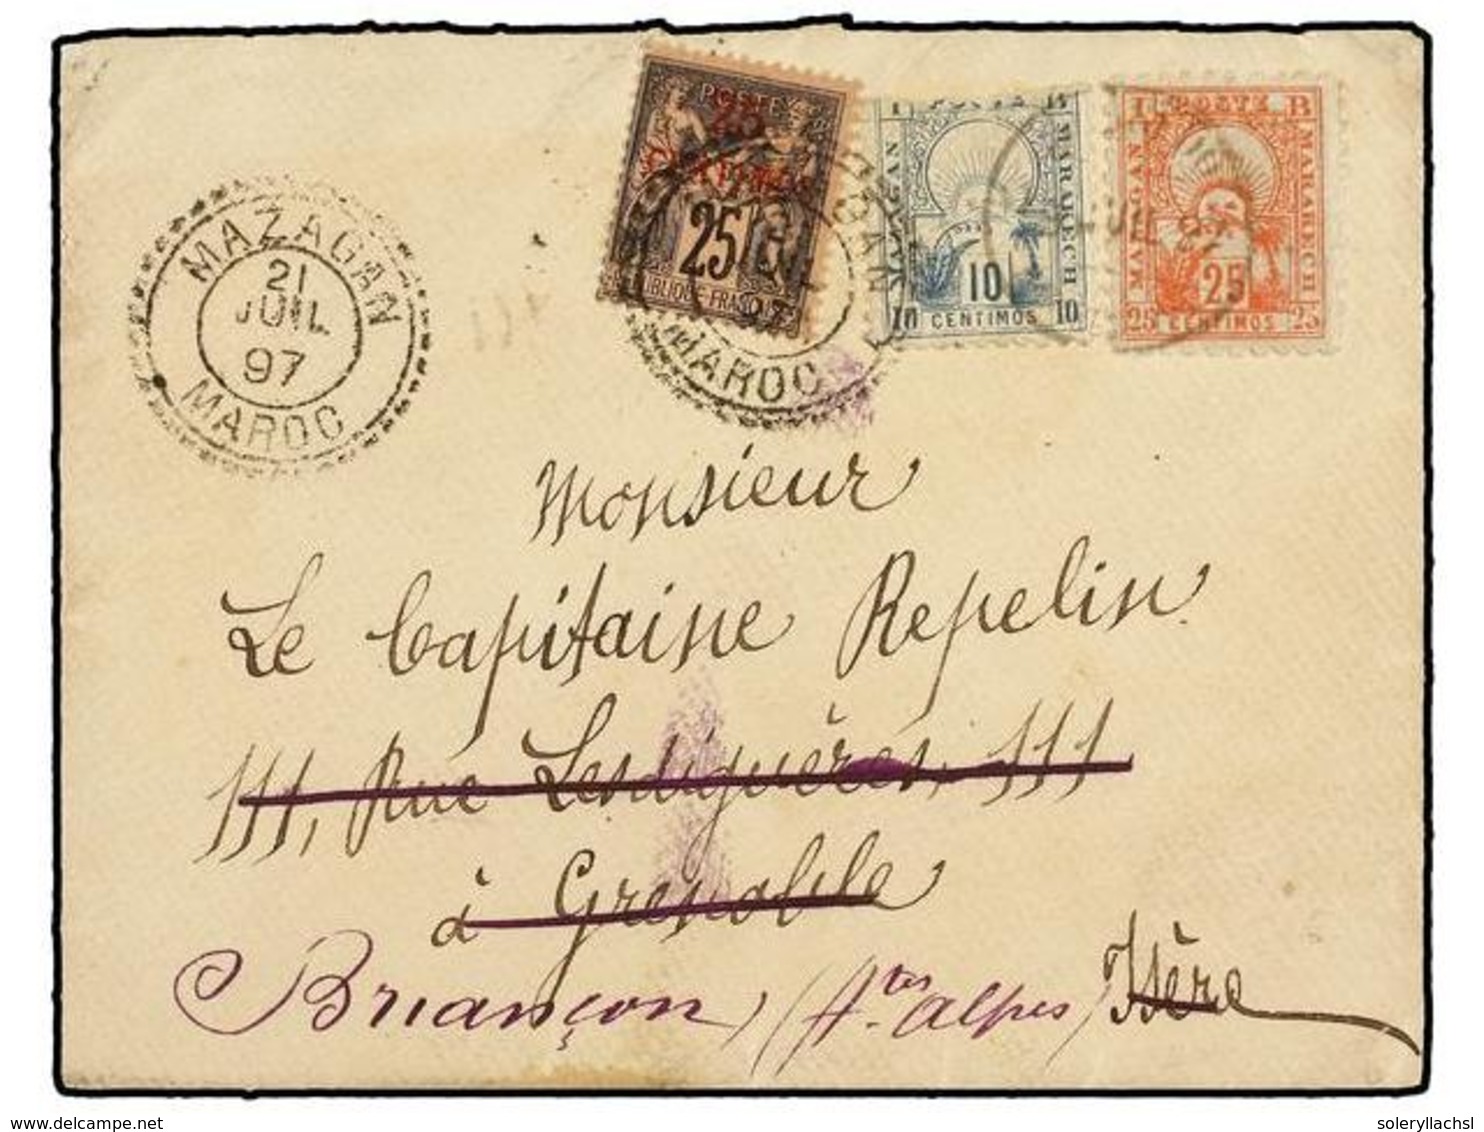 MAZAGAN
21
JUIL
97
MAROC
25
CENTIMOS
25
MAROC
POSTE
MAZAGAN
MARAKECH
10
10 CENTIMOS 10
POSTE B
MAZAGAN
MARAKECH
25
25 CENTIMOS 25
Monsieur
Le Capitaine Repelin
111, Rue Lesdiguères, 111
à Grenoble
Briançon, (Htes alpes) Isère
soleryllachsl